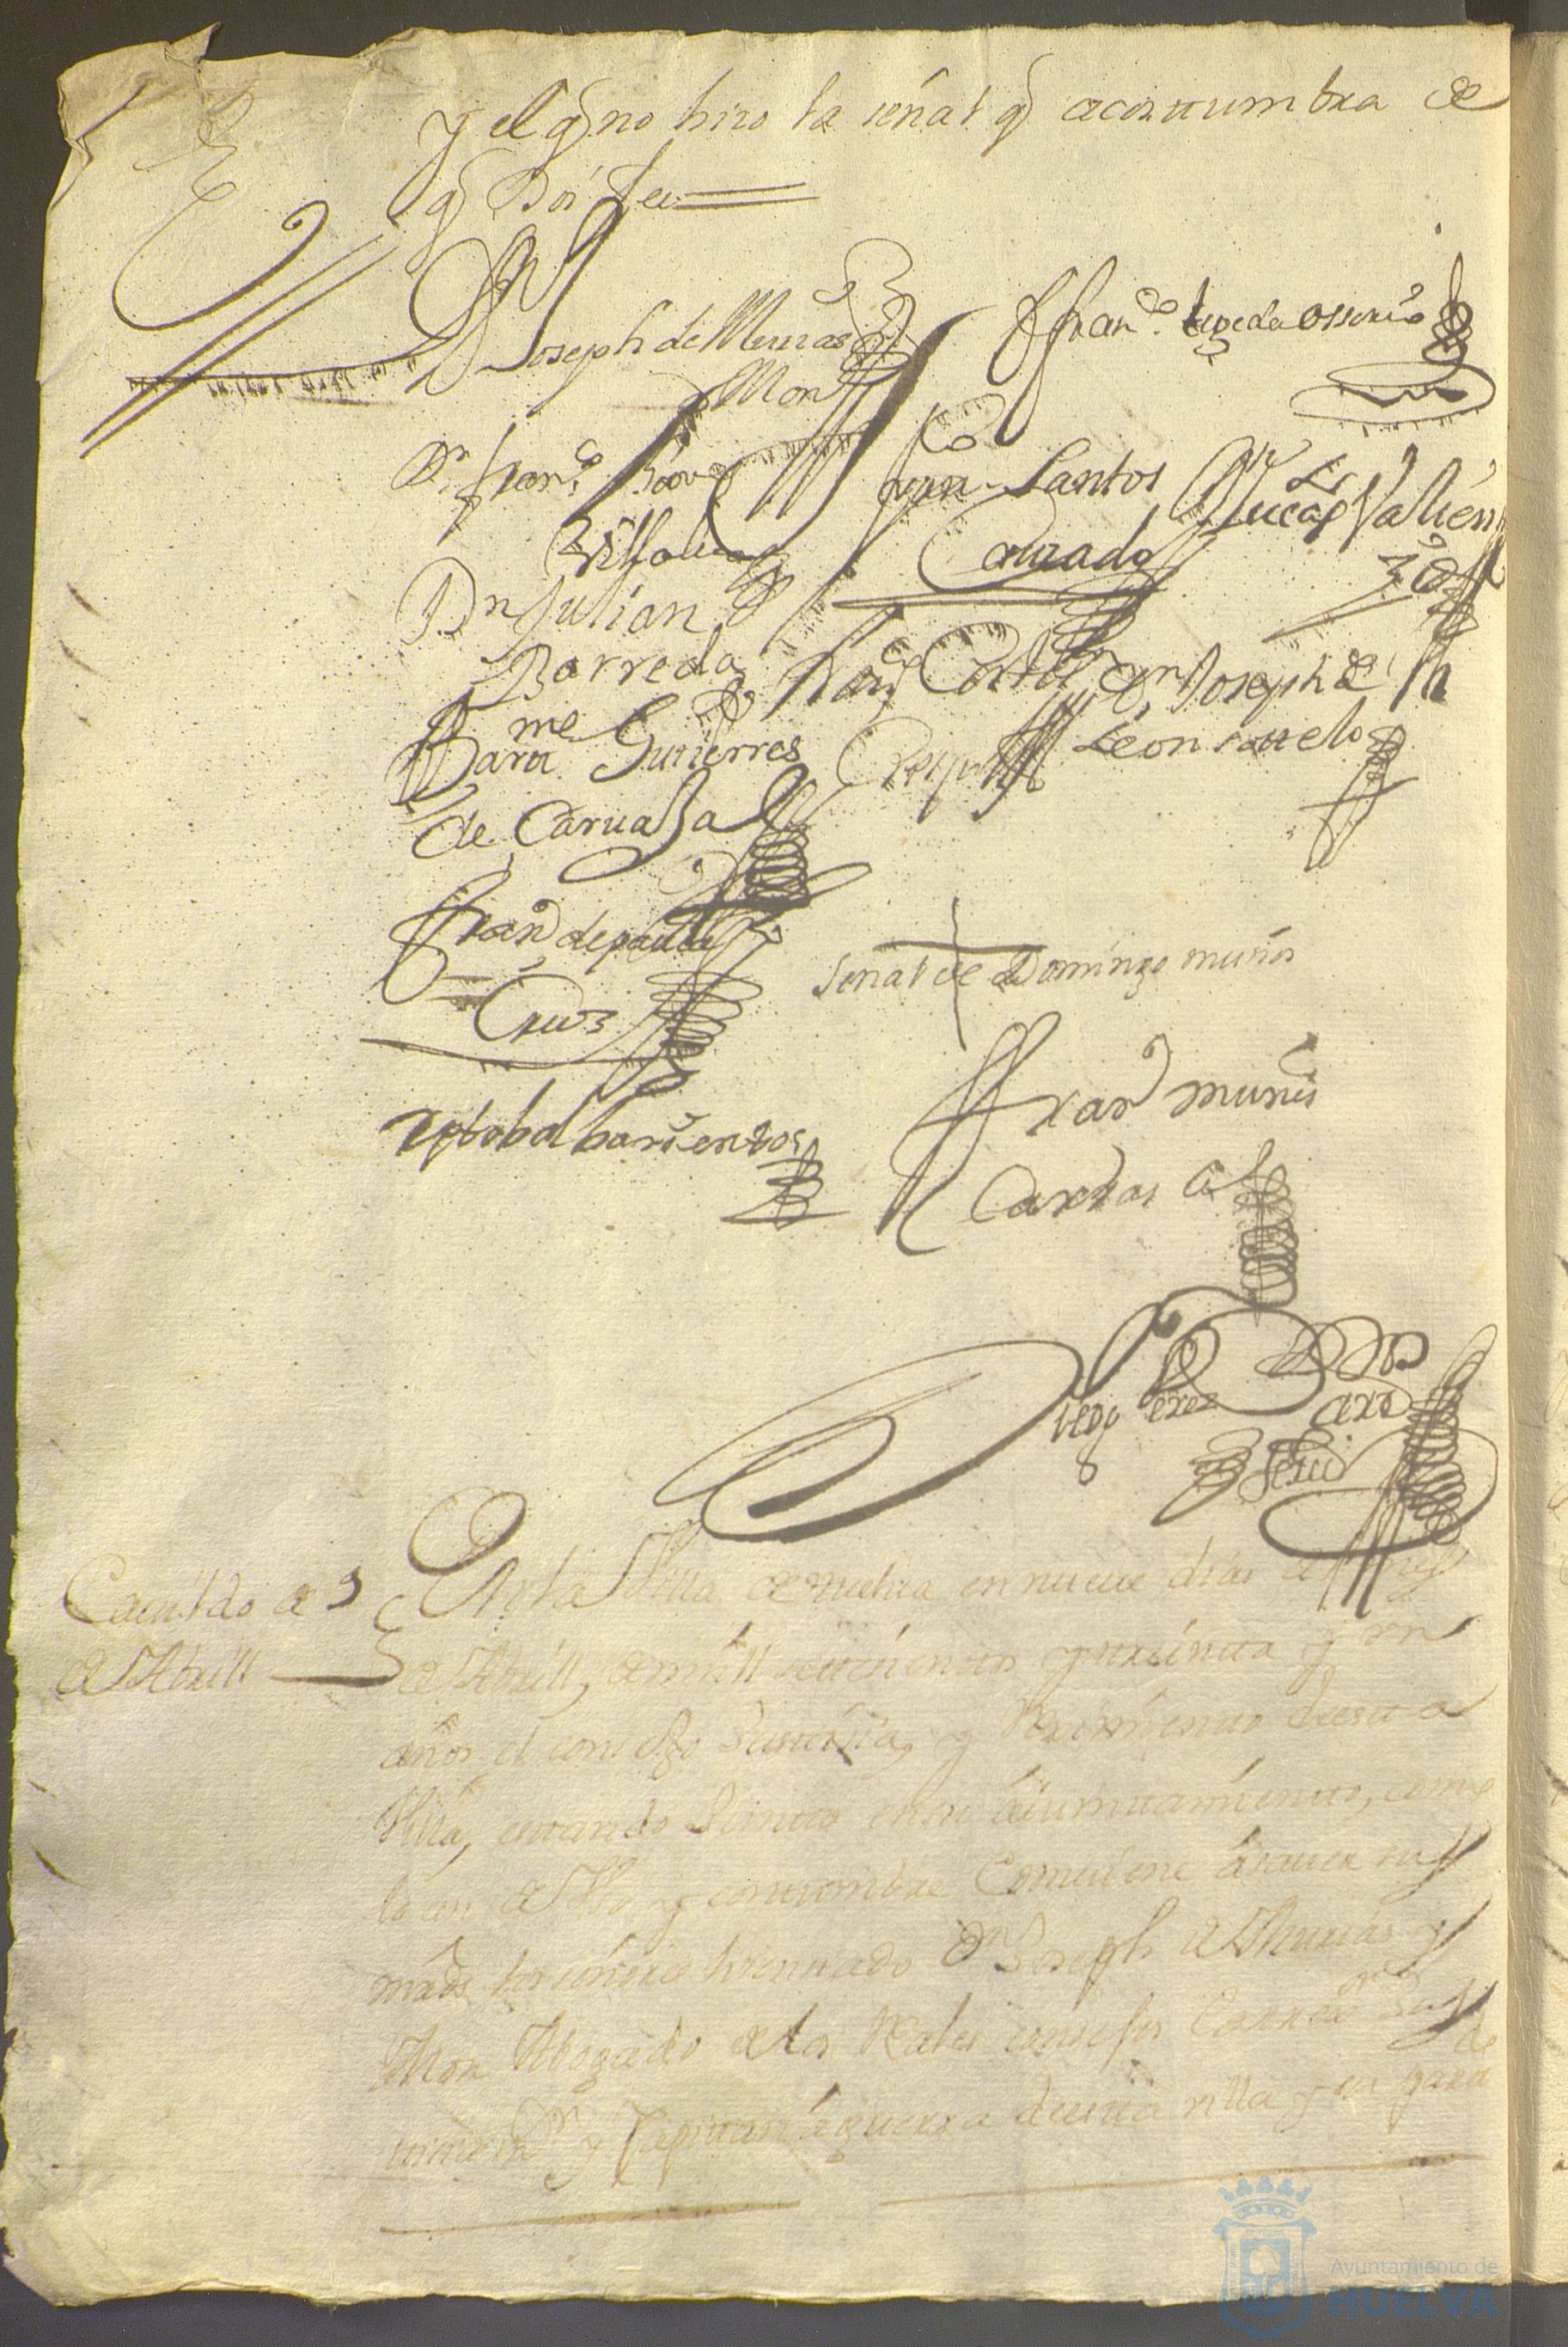 y el q̃ no hizo la señal q̃ acostumbra de
q̃ Doi fee
Dn Joseph de Mexias
y Mon
ffranco. zepeda ossorio
Dn franco. 
Villalva
Juan Santos
Dn Lucas Valien
Dn Julian
Barreda
franco Cortes
Dn Joseph de
Leon sotelo
Barme Gutierres
de CarvaJal
fran de paula
Cruz
señal de Domingo muños
xptobal barientos
ffran muñis
Diego Perez
Cavildo de 9
de Abrill
En la Villa de Huelva en nueve dias del mes
de Abrill, de mill setecientos y treinta y un
años el consejo Justicia, y Reximiento desta
Villa, estando Junto en su aiuntamiento, como
lo an de Uso, y costumbre Comviene á saver su
mrds los señores lizenciado Dn Joseph de Mexias y
Mon Abogado de los Reales consejos Correxor Su
y Capitan á guerra desta villa y su parti
do
Ayuntamiento de
HUELVA